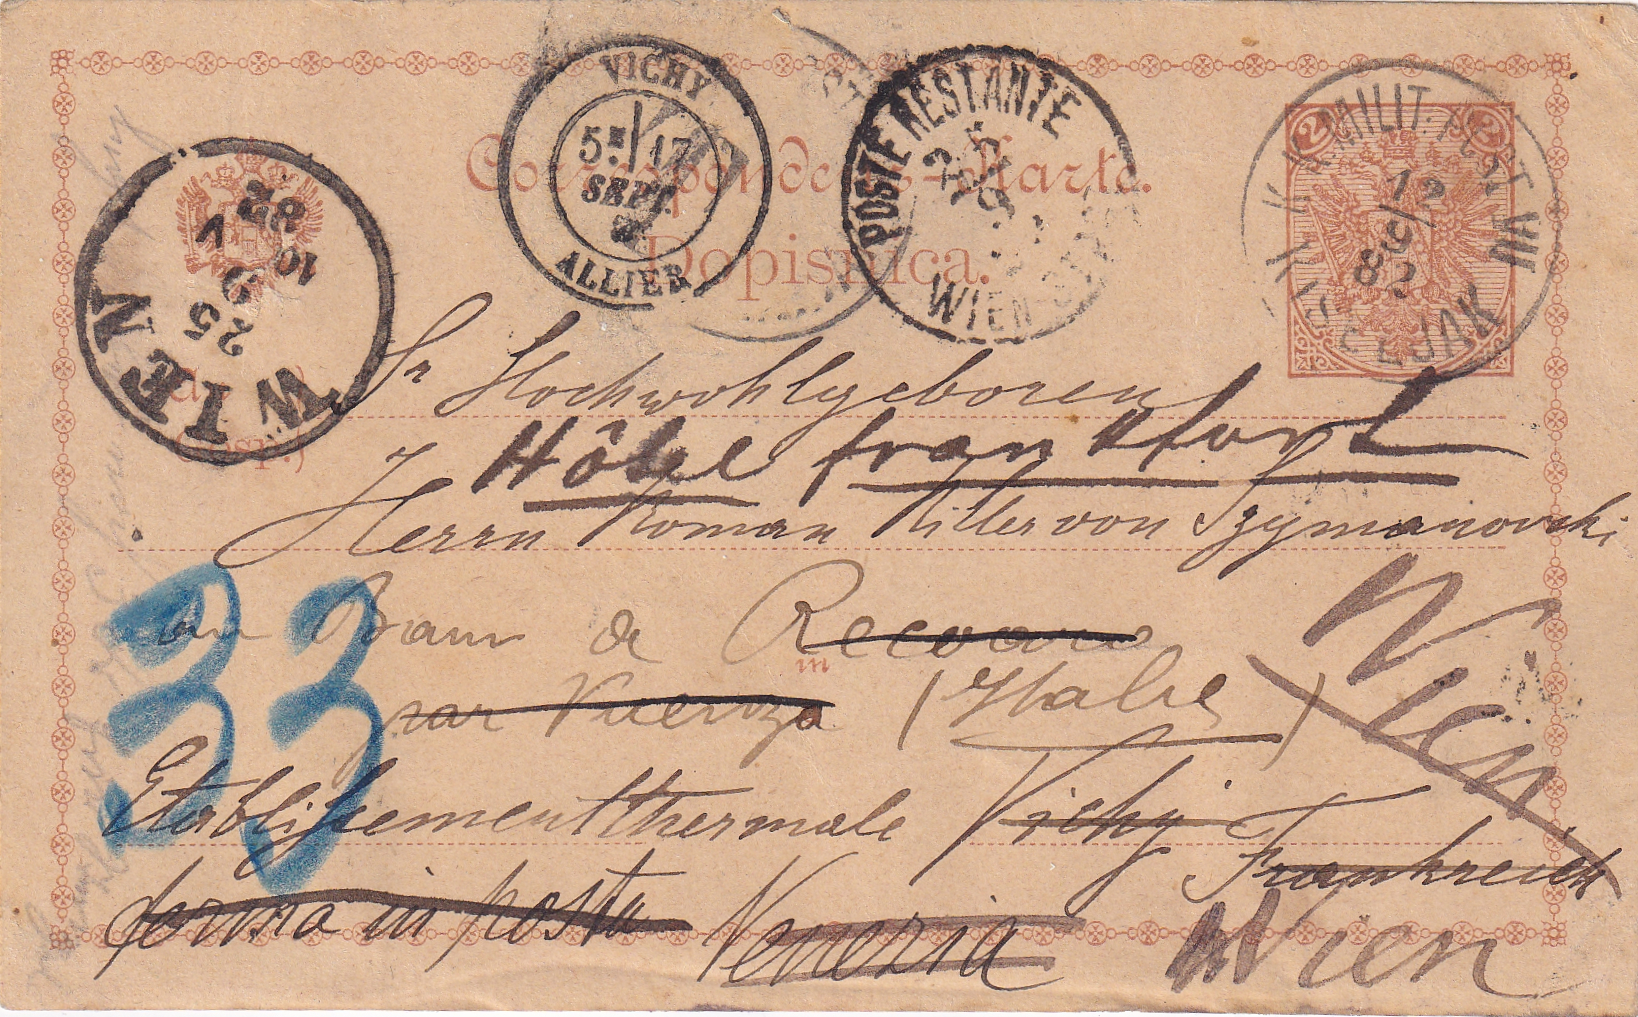 Correspondenz-Karte.
Dopisnica.
VICHY
5E 17
SEPT.
ALLIER
POSTE RESTANTE
25/9
WIEN
K.K. MILIT. POST VII
12/9
82
PLEVLJE
WIEN
25 9
82
10 V
2 2
Sr Hochwohlgeboren
Hôtel frankfort
Herrn Roman Ritter von Szymanovski
au Bain de Recoaro
in
par Vicenza (Italie)
Wien
Etablissement thermale Vichy Frankreich
ferma in posta Venezia Wien
33